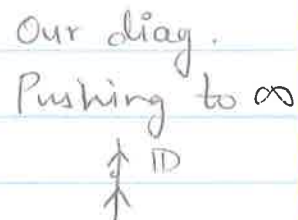 Our diag.
Pushing to ∞
𝔻